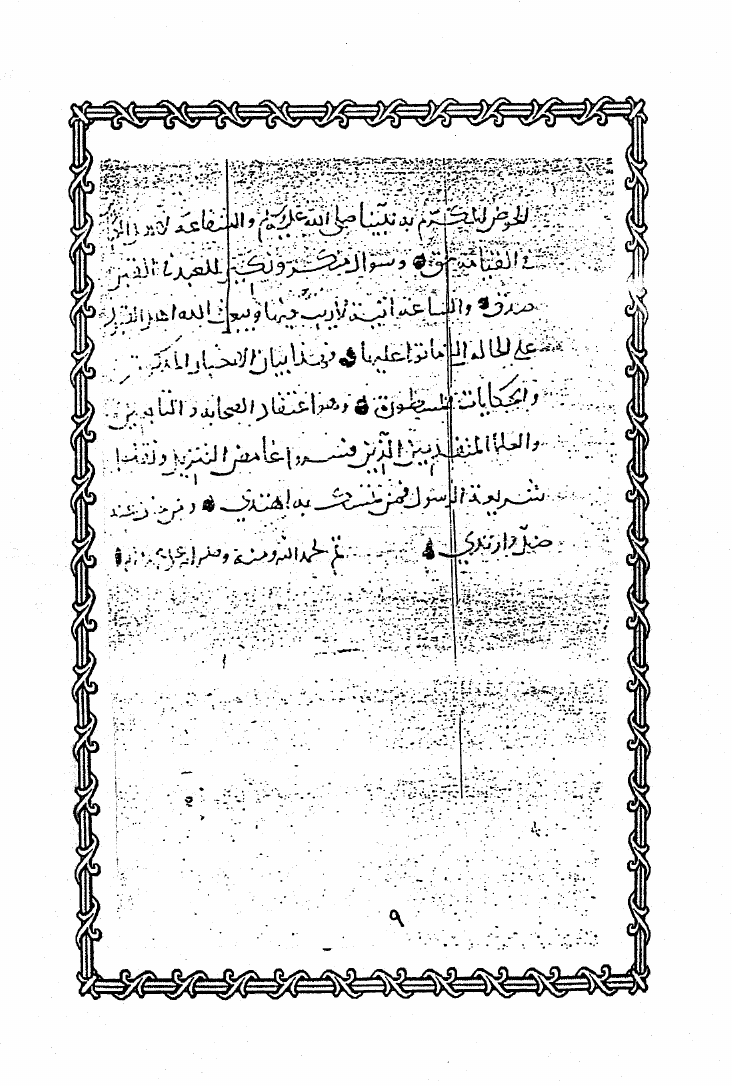 الحوض المكرم به نبينا صلى الله عليه وسلم والشفاعة
في القيامة حق وسؤال منكر ونكير للعبد في القبر
صدق والساعة اتية لا ريب فيها ويبعث الله اهل القبور
على الحالة التي ماتوا عليها فهذا بيان الاخبار
والحكايات المسطورة وهو اعتقاد الصحابة والتابعين
والعلما المتقدمين الذين فسروا غامض التنزيل
شريعة الرسول فمن تمسك به اهتدى ومن
ضل وارتدي تم الحمد لله ومنه
٩